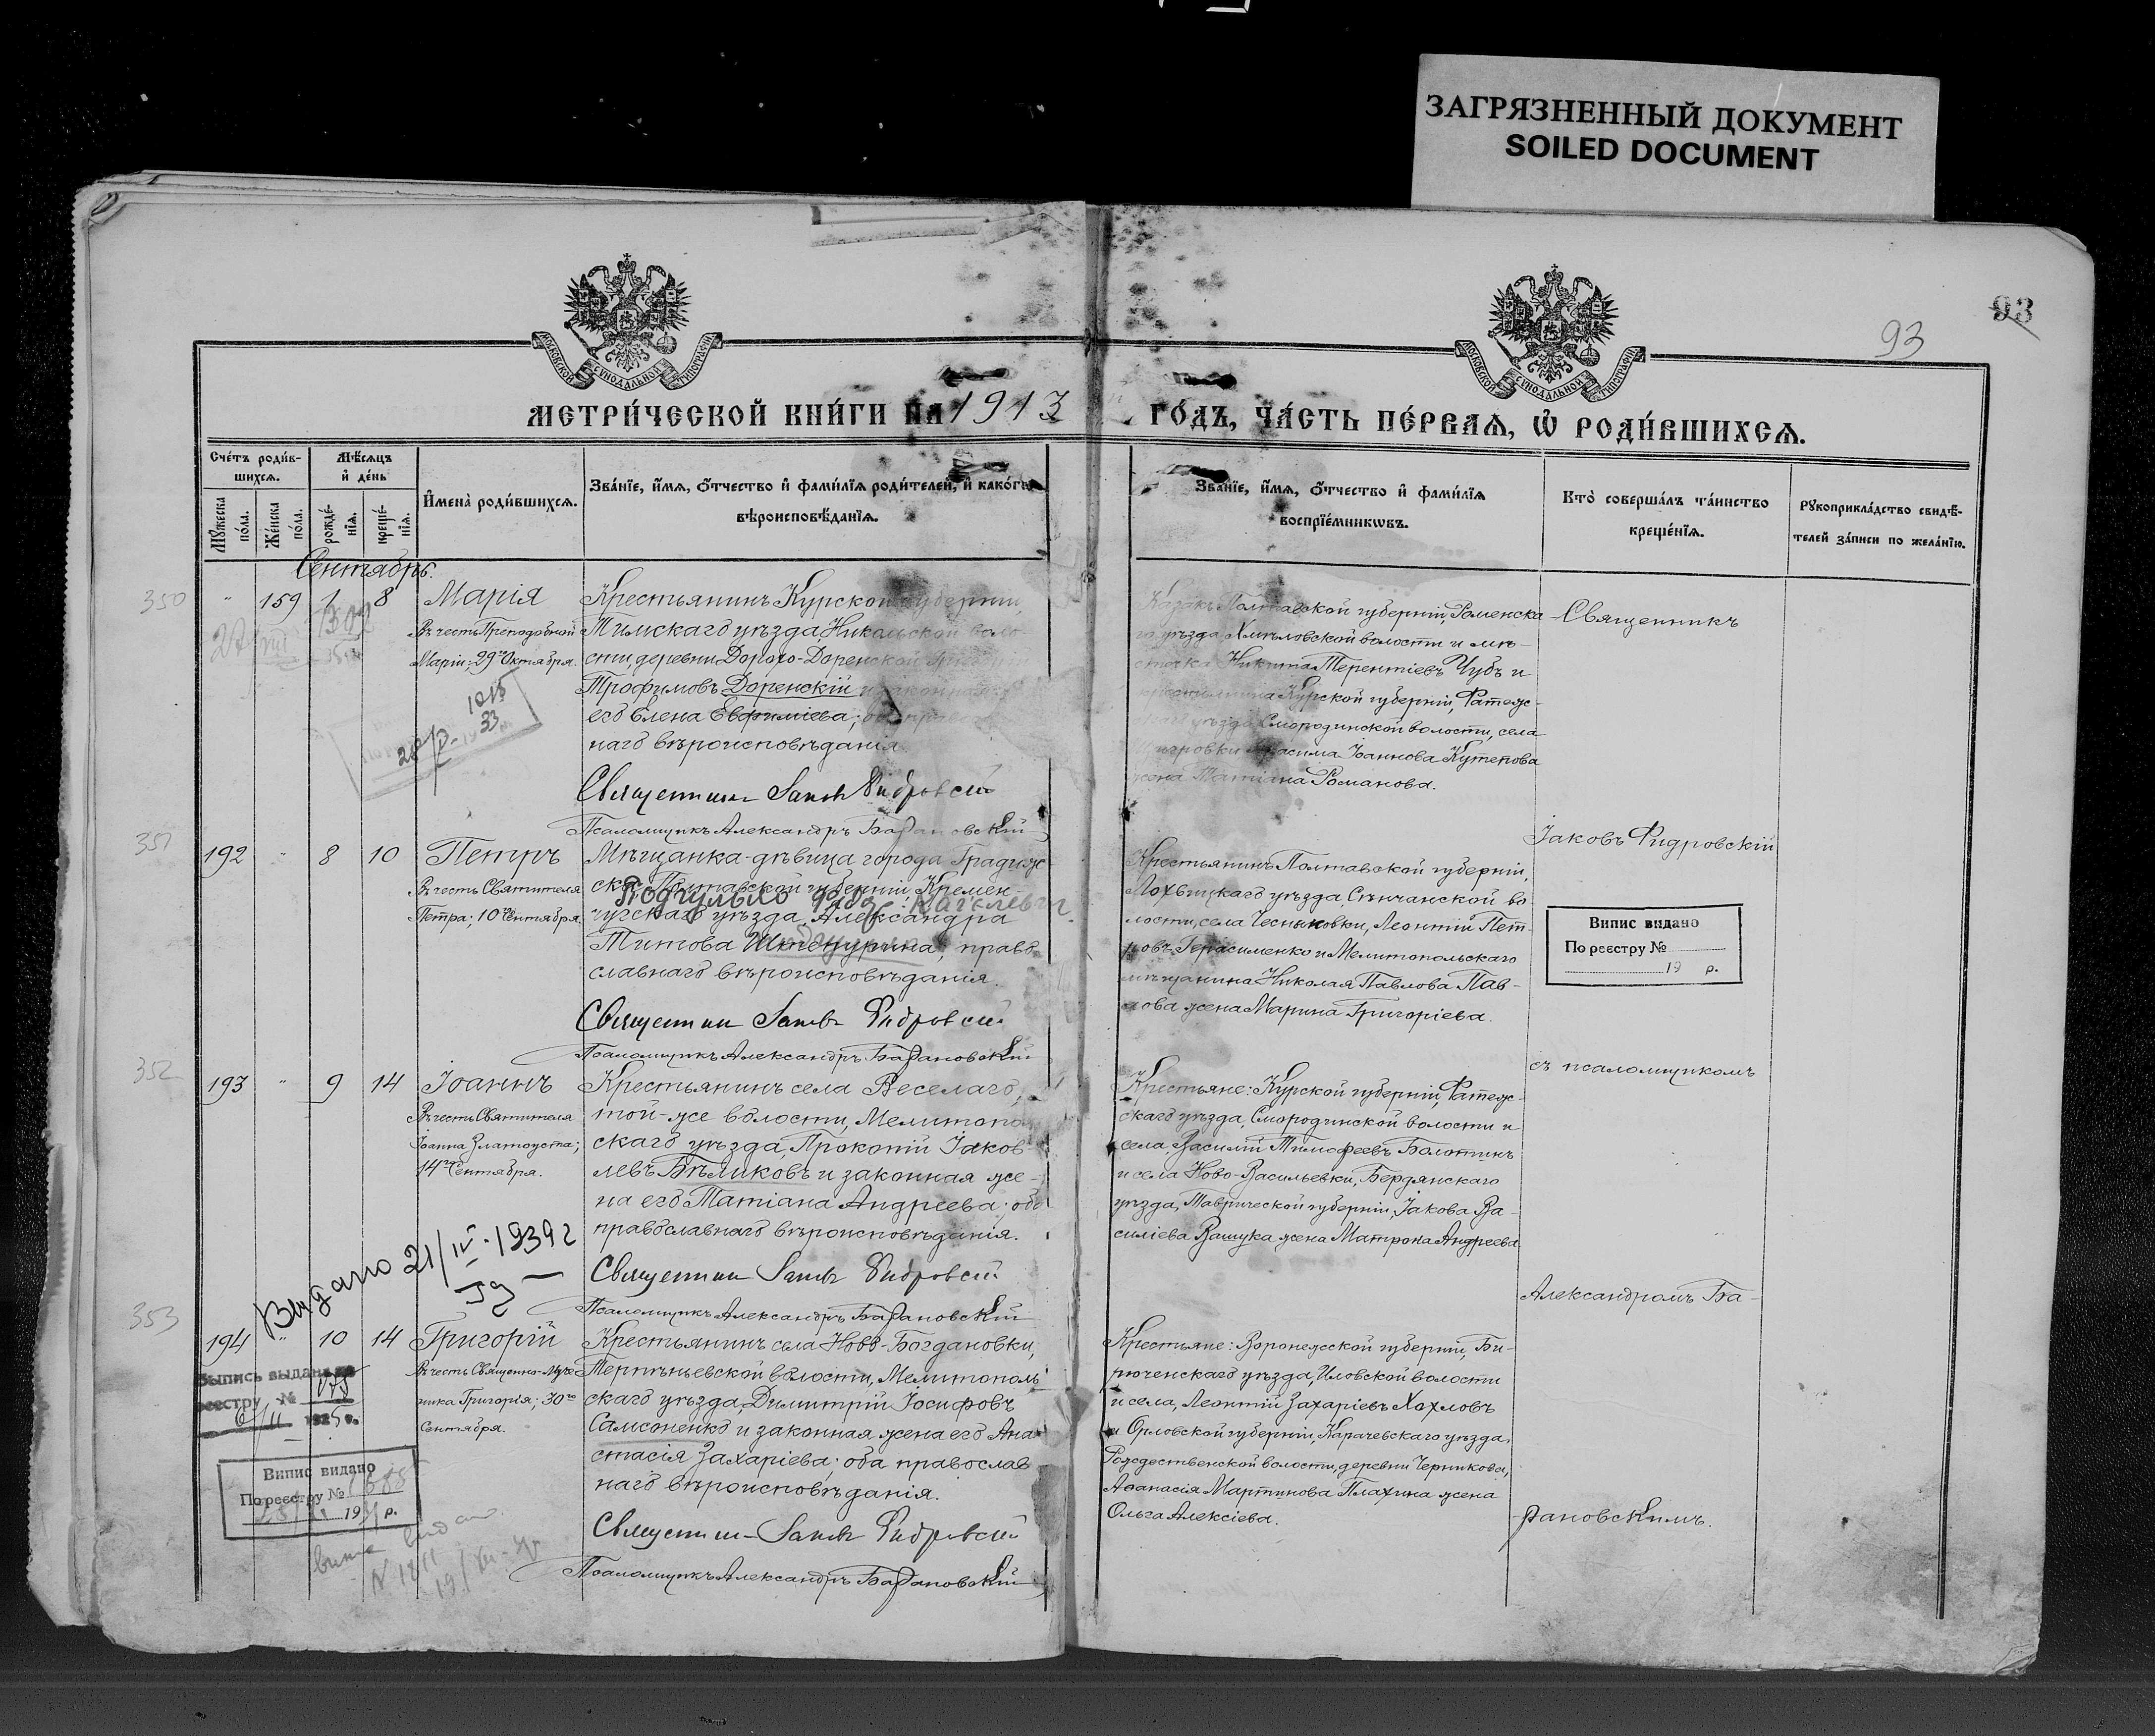 ЗАГРЯЗНЕННЫЙ ДОКУМЕНТ
SOILED DOCUMENT
93
93
МОСКОВСКОЙ СѴНОДАЛЬНОЙ ТИПОГРАФІИ
МОСКОВСКОЙ СѴНОДАЛЬНОЙ ТИПОГРАФІИ
МЕТРИ́ЧЕСКОЙ КНИ́ГИ НА 1913 ГО́ДЪ, ЧА́СТЬ ПЕ́РВАѦ, Ѡ РОДИ́ВШИХСѦ.
Сче́тъ роди́в-
шихсѧ.
Мꙋ́жеска по́ла.
Же́нска по́ла.
Мѣ́сѧцъ
и҆ де́нь
рожде́-
нїѧ.
креще́-
нїѧ.
И҆мена̀ роди́вшихсѧ.
Зва́нїе, и҆́мѧ, ѻ҆́тчество и҆ фами́лїѧ роди́телей, и҆ како́гѡ
вѣроисповѣ́данїѧ.
Зва́нїе, и҆́мѧ, ѻ҆́тчество и҆ фами́лїѧ
воспрїе́мникѡвъ.
Кто̀ соверша́лъ та́инство
креще́нїѧ.
Рꙋкоприкла́дство свидѣ́-
телей за́писи по жела́нїю.
Сентябрь.
350
" 159 1 8
Марія
Въ честь Преподобной
Маріи; 29го Октября.
Крестьянинъ Курской губерніи,
Тимскаго уѣзда, Никольской воло
сти, деревни Дорого-Доренской
Трофимовъ Доренскій и законная
его Елена Евфиміева;
наго вѣроисповѣданія.
Священникъ Іаковъ Фидровскій
Псаломщикъ Александръ Барановскій
Казакъ Полтавской губерніи, Роменска
го уѣзда, Хмѣловской волости и мѣ-
стечка Никита Терентіевъ Чубъ и
Курской губерніи, Фатеж-
скаго уѣзда, Смородинской волости, села
Іоаннова Кутепова
жена Татіана Романова.
Священникъ
351
192 " 8 10
Петръ
Въ честь Святителя
Петра; 10 Сентября.
Мѣщанка-дѣвица города Градиж
ска, Полтавской губерніи, Кремен-
чугскаго уѣзда, Александра
Титова; право
славнаго вѣроисповѣданія.
Священникъ Іаковъ Фидровскій
Псаломщикъ Александръ Барановскій
Крестьянинъ Полтавской губерніи,
Лохвицкаго уѣзда, Сѣнчанской во
лости, села Чесныковки, Леонтій Пет-
ровъ Герасименко и Мелитопольскаго
мѣщанина Николая Павлова Пав-
лова жена Марина Григоріева.
Іаковъ Фидровскій
Випис видано
По реєстру №
19 р.
352
193 " 9 14
Іоаннъ
Въ честь Святителя
Іоанна Златоуста;
14го Сентября.
Крестьянинъ села Веселаго,
той-же волости, Мелитополь
скаго уѣзда, Прокопій Іаков-
левъ Бѣликовъ и законная же-
на его Татіана Андреева; оба
православнаго вѣроисповѣданія.
Священникъ Іаковъ Фидровскій
Псаломщикъ Александръ Барановскій
Крестьяне: Курской губерніи, Фатеж-
скаго уѣзда, Смородинской волости и
села, Василій Тимофеевъ Болотинъ
и села Ново-Васильевки, Бердянскаго
уѣзда, Таврической губерніи, Іакова Ва-
силіева Ващука жена Матрона Андреева.
съ псаломщикомъ
Видано 21/IV-1939 г
353
194 " 10 14
Григорій
Въ честь Священно-Муче
ника Григорія; 30го
Сентября.
Крестьянинъ села Ново-Богдановки,
Терпѣніевской волости, Мелитополь
скаго уѣзда, Димитрій Іосифовъ
Самсоненко и законная жена его Ана
стасія Захаріева; оба православ
наго вѣроисповѣданія.
Священникъ Іаковъ Фидровскій
Псаломщикъ Александръ Барановскій
Крестьяне: Воронежской губерніи, Би-
рюченскаго уѣзда, Иловской волости
и села, Леонтій Захаріевъ Хохловъ
и Орловской губерніи, Карачевскаго уѣзда,
Рождественской волости, деревни Черникова,
Афанасія Мартинова Плахина жена
Ольга Алексіева.
Александромъ Ба-
рановскимъ.
Выпись выдана по
реестру №
Випис видано
По реєстру №
19 р.